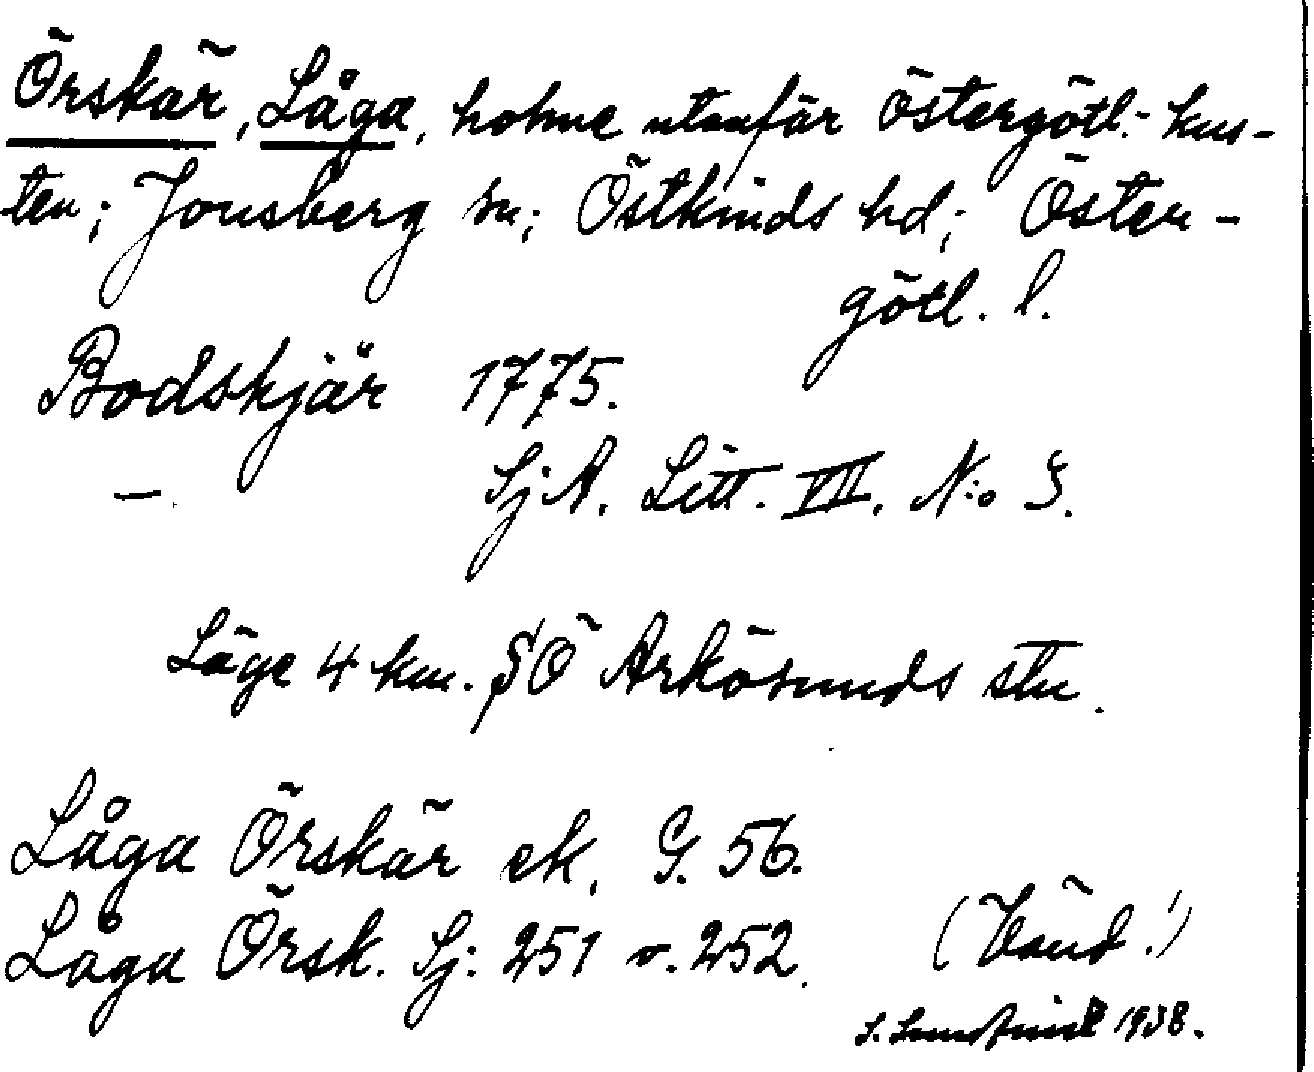 Örskär, Låga, holme utanför Östergötl:- kus-
ten; Jonsberg sn; Östkinds hd; Öster-
götl. l.
Bodskjär 1775.
— SjA. Litt. VII. N:o 3.
Läge 4 km. SÖ Arkösunds stn.
Låga Örskär ek. G. 56.
Låga Örsk. Sj: 251 o. 252.
(Vänd!)
S. 1938.